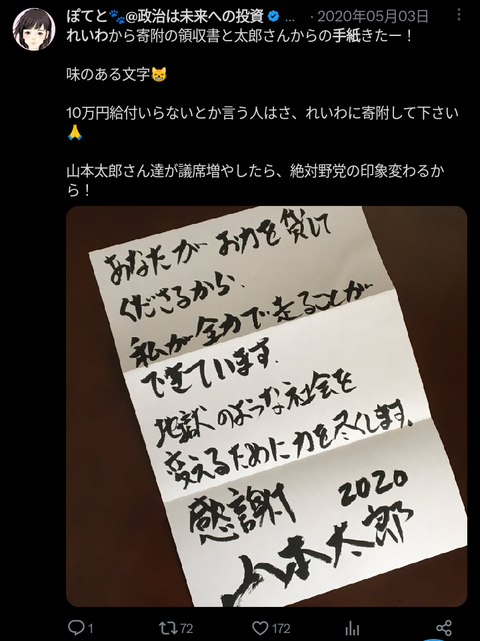 ぽてと🐾@政治は未来への投資 ... · 2020年05月03日
れいわから寄附の領収書と太郎さんからの手紙きたー！
味のある文字😸
10万円給付いらないとか言う人はさ、れいわに寄附して下さい
🙏
山本太郎さん達が議席増やしたら、絶対野党の印象変わるか
ら！
あなたが お力を貸して
くださるから、
私が全力で走ることが
できています。
地獄のような社会を
変えるために力を尽くします。
感謝 2020
山本太郎
1 72 172